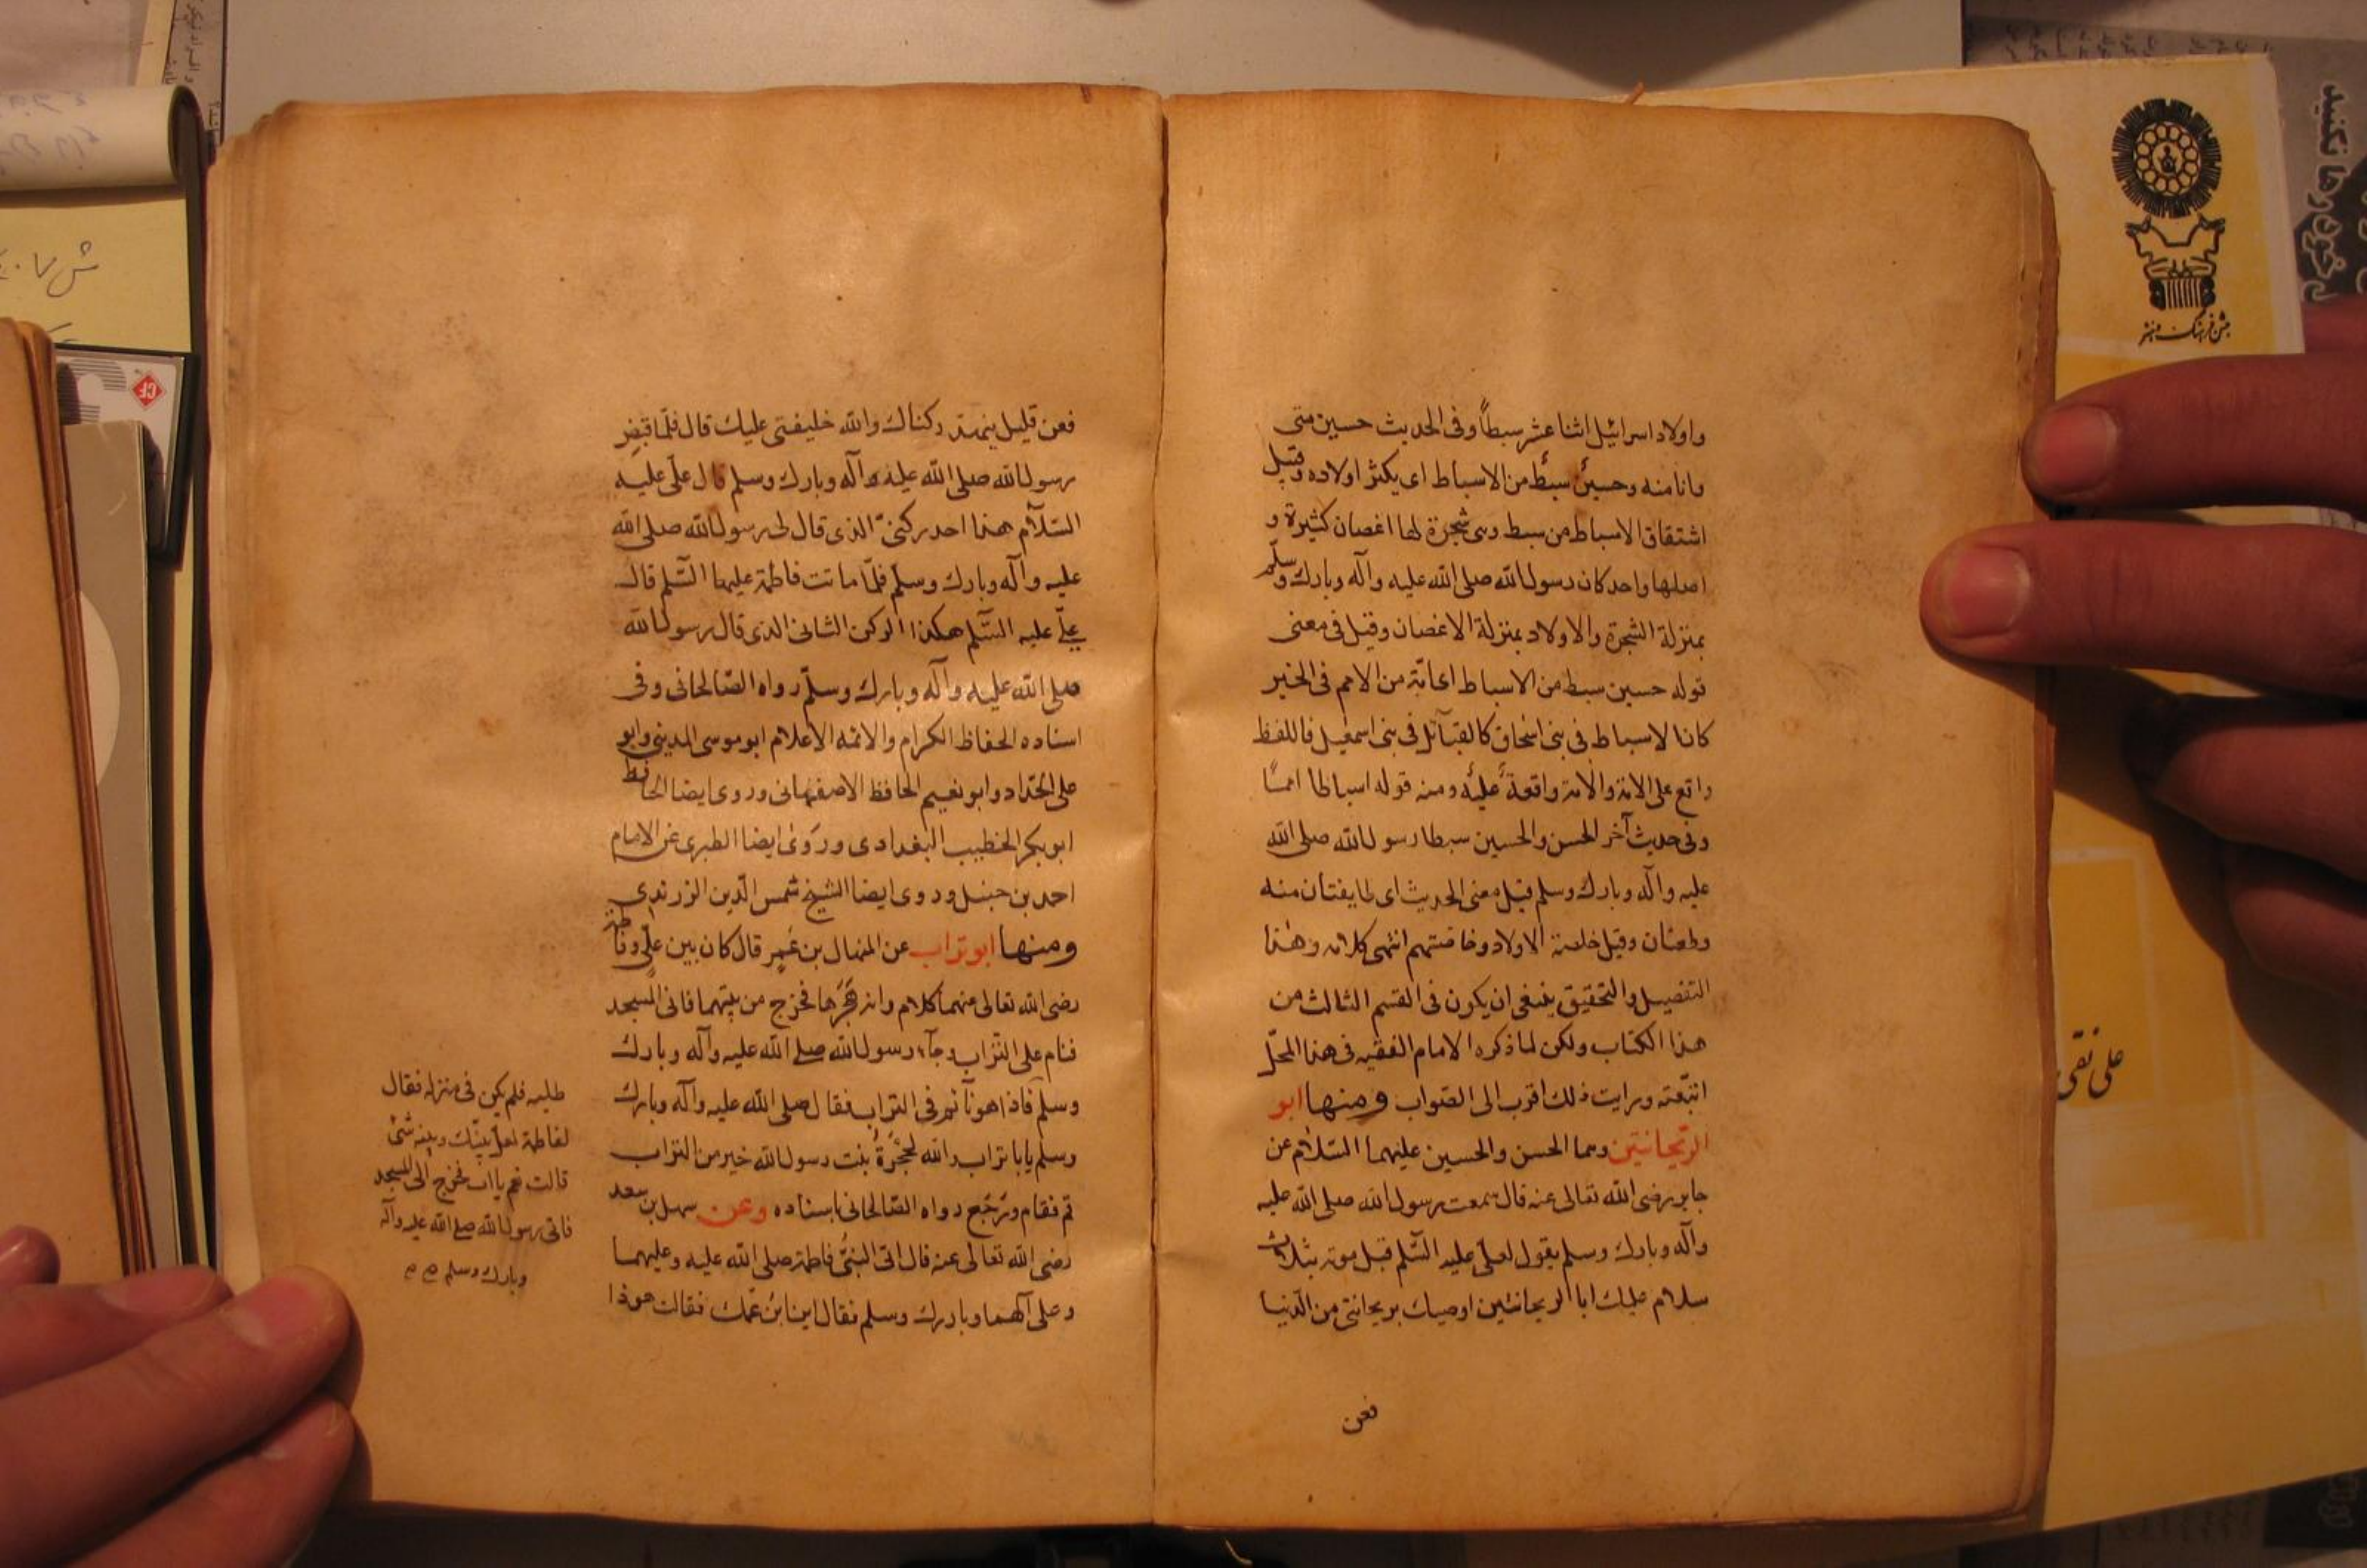 واولاد اسرائيل اثنا عشر سبطاً وفى الحديث حسين منى
وانا منه وحسينٌ سبطٌ من الاسباط اى يكثر اولاده وقيل
اشتقاق الاسباط من سبط وهى شجرة لها اغصان كثيرة و
اصلها واحد كان رسول الله صلى الله عليه وآله وبارك وسلّم
بمنزلة الشجرة والاولاد بمنزلة الاغصان وقيل فى معنى
قوله حسين سبط من الاسباط اى امّة من الامم فى الخير
كانا لاسباط فى بنى اسحاق كالقبآئل فى بنى اسمعيل فاللفظ
واقع على الامة والامة واقعة عليه ومنه قوله اسباطا امماً
وفى حديث آخر الحسن والحسين سبطا رسول الله صلى الله
عليه وآله وبارك وسلم قيل معنى الحديث اى طايفتان منه
وطعتان وقيل خاصة الاولاد وخاصتهم انتهى كلامه وهذا
التفصيل والتحقيق ينبغى ان يكون فى القسم الثالث من
هذا الكتاب ولكن لما ذكره الامام الفقيه فى هذا المحلّ
اتبعته ورايت ذلك اقرب الى الصّواب ومنها ابو
الريحانتين وهما الحسن والحسين عليهما السّلام عن
جابر رضى الله تعالى عنه قال سمعت رسول الله صلى الله عليه
وآله وبارك وسلم يقول لعلىّ عليه السّلم قبل موته بثلاث
سلام عليك ابا الريحانتين اوصيك بريحانتى من الدّنيا
فعن
فعن قليل ينهدّ ركناك والله خليفتى عليك قال فلمّا قبض
رسول الله صلى الله عليه وآله وبارك وسلم قال علىّ عليه
السّلام هذا احد ركنىّ الذى قال لى رسول الله صلى الله
عليه وآله وبارك وسلم فلمّا ماتت فاطمة عليها السّلم قال
علىّ عليه السّلم هكذا الركن الثانى الذى قال رسول الله
صلى الله عليه وآله وبارك وسلّم رواه الصّالحانى وفى
اسناده الحفاظ الكرام والائمه الاعلام ابوموسى المدينى وابو
على الحدّاد وابو نعيم الحافظ الاصفهانى وروى ايضا الحافظ
ابوبكر الخطيب البغدادى وروى ايضا الطبرى عن الامام
احمد بن حنبل وروى ايضا الشيخ شمس الدّين الزرندى
ومنها ابوتراب عن المنهال بن عمير قال كان بين علىّ وفاطمة
رضى الله تعالى عنهما كلام وانه هجرها فخرج من بيتهما فاتى المسجد
فنام على التراب وجآء رسول الله صلى الله عليه وآله وبارك
وسلم فاذا هو نآئم فى التراب فقال صلى الله عليه وآله وبارك
وسلم يابا تراب والله لحجرةُ بنت رسول الله خير من التراب
قم فقام وترجّع رواه الصّالحانى باسناده وعن سهل بن سعد
رضى الله تعالى عنه قال اتى النبىّ فاطمة صلى الله عليه وعليهما
وعلى آلهما وبارك وسلم فقال اين ابن عمّك فقالت هوذا
طلبه فلم يكن فى منزله فقال
لفاطمة لعلّ بينك وبينه شئ
قالت نعم يا اب فخرج الى المسجد
فاتى رسول الله صلى الله عليه وآله
وبارك وسلم صح صح
على نقى
جشن فرهنگ و هنر